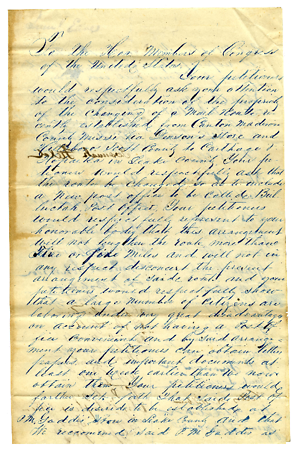 To the Hon Members of Congress
of the United States.
Your petitioners
would respectfully ask your attention
to the consideration of the propriety
of the Changeing of a Mail Route
established from Canton Madison
County Mississippi Store and
County to Carthage
in Leake County Your pe-
titioners would respectfully ask that
the route be Changed so as to include
a New post office to be Called
Your petitioners
would respectfully represent to your
honorable body that this arrangement
will not lengthen the route more than
Five or Six Miles and will not in
any respect disconcert the present
arrangement of said road, and your
petitioners would respectfully show
that a large Number of Citizens are
laboring under very great disadvantages
on account of not having a Post of-
fice Convenient and by said arrange-
ment your petitioners can obtain letters
papers and documents at
least one week earlier than they now
obtain them. Your petitioners would
farther set forth that said Post of-
fice is desired to be established at
Store in Leake County and that
we recommend said as